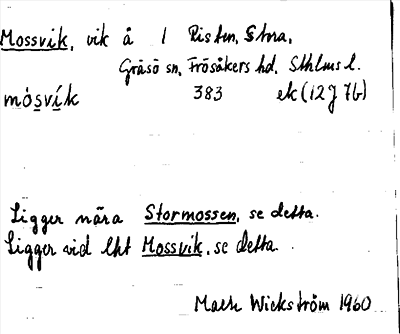 Mossvik, vik å 1 Risten, Stora,
Gräsö sn, Frösåkers hd, Sthlms l.
mòsvík 383 ek (12J 7b)
Ligger nära Stormossen, se detta.
Ligger vid lht Mossvik, se detta.
Wickström 1960